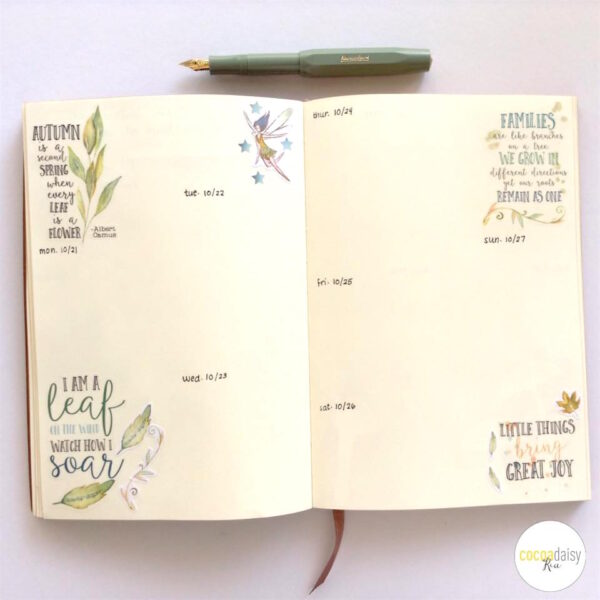 AUTUMN
is a
second
SPRING
when
every
LEAF
is a
FLOWER
-Albert
Camus
mon. 10/21
tue. 10/22
wed. 10/23
I AM A
leaf
ON THE WIND
WATCH HOW I
soar
thur. 10/24
fri. 10/25
sat. 10/26
FAMILIES
are like branches
on a tree
WE GROW IN
different directions
yet our roots
REMAIN AS ONE
sun. 10/27
LITTLE THINGS
bring
GREAT JOY
cocoadaisy